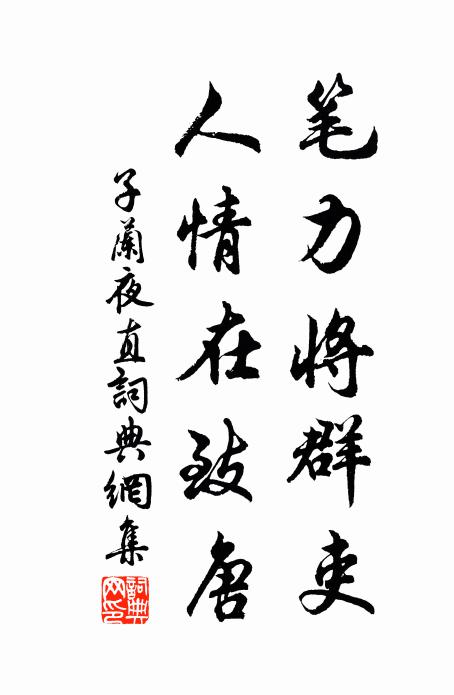 笔力将群吏
人情在致唐
子蘭夜直詞典網集
詞典
网印